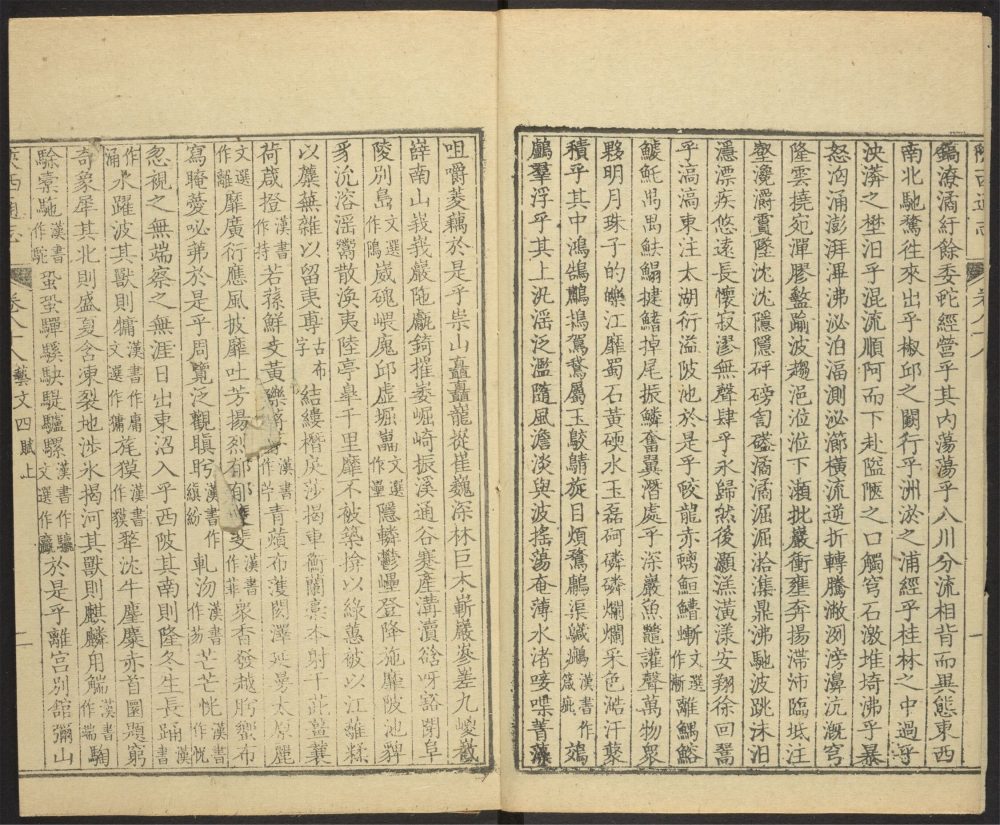 陝西通志　卷八十八　一
鎬潦潏紆餘委蛇經營乎其內蕩蕩乎八川分流相背而異態東西
南北馳騖往來出乎椒邱之闕行乎洲淤之浦經乎桂林之中過乎
泱漭之壄汨乎混流順阿而下赴隘陿之口觸穹石激堆埼沸乎暴
怒洶涌澎湃滭沸泌泊湢測泌瀄橫流逆折轉騰潎洌滂濞沆溉穹
隆雲撓宛潬膠盭踰波趨浥涖涖下瀨批巖衝壅奔揚滯沛臨坻注
壑瀺灂霣墜沈沈隱隱砰磅訇磕潏潏淈淈湁集鼎沸馳波跳沫汨
濦漂疾悠遠長懷寂漻無聲肆乎永歸然後灝溔潢漾安翔徐回翯
乎滈滈東注太湖衍溢陂池於是乎鮫龍赤螭䱭䲛蜥文選作漸離鰅鰫
鰬魠禺禺魼鰨揵鰭掉尾振鱗奮翼潛處乎深巖魚鼈讙聲萬物衆
夥明月珠子的皪江靡蜀石黃碝水玉磊砢磷磷爛爛采色澔汗藂
積乎其中鴻鵠鷫鴇鴐鵞屬玉鵁鶄旋目煩鶩鷛渠䴋鷀漢書作箴疵鵁
鸕羣浮乎其上汎淫泛濫隨風澹淡與波搖蕩奄薄水渚唼喋菁藻
咀嚼菱藕於是乎崇山矗矗龍嵸崔巍深林巨木嶄巖參差九嵕嶻
嶭南山峩峩巖陁甗錡摧崣崛崎振溪通谷蹇產溝瀆谽呀豁閉阜
陵別島文選作隝崴磈㟪廆邱虛堀礨文選作壘隱轔鬱㠥登降施靡陂池貏
豸沇溶淫鬻散渙夷陸亭皋千里靡不被築揜以綠蕙被以江蘺糅
以蘪蕪雜以留夷尃古布字結縷攢戾莎揭車衡蘭槀本射干茈薑蘘
荷葴橙漢書作持若蓀鮮支黃礫蔣漢書作苧青薠布濩閎澤延曼太原麗
文選作離靡廣衍應風披靡吐芳揚烈郁郁斐漢書作菲衆香發越肸蠁布
寫晻薆咇茀於是乎周覽泛觀瞋盼漢書作縝紛軋沕漢書作芴芒芒恍漢書作怳
忽視之無端察之無涯日出東沼入乎西陂其南則隆冬生長踊漢書
涌作水躍波其獸則㺎漢書作庸文選作㺎旄獏漢書作貘犛沈牛麈麋赤首圜題窮
奇象犀其北則盛夏含凍裂地涉氷揭河其獸則麒麟用觿漢書作端騊
駼橐駞漢書作駝蛩蛩驒騱駃騠驢騾漢書作驘文選作驘於是乎離宮別館彌山
陝西通志　卷八十八藝文四賦上　一